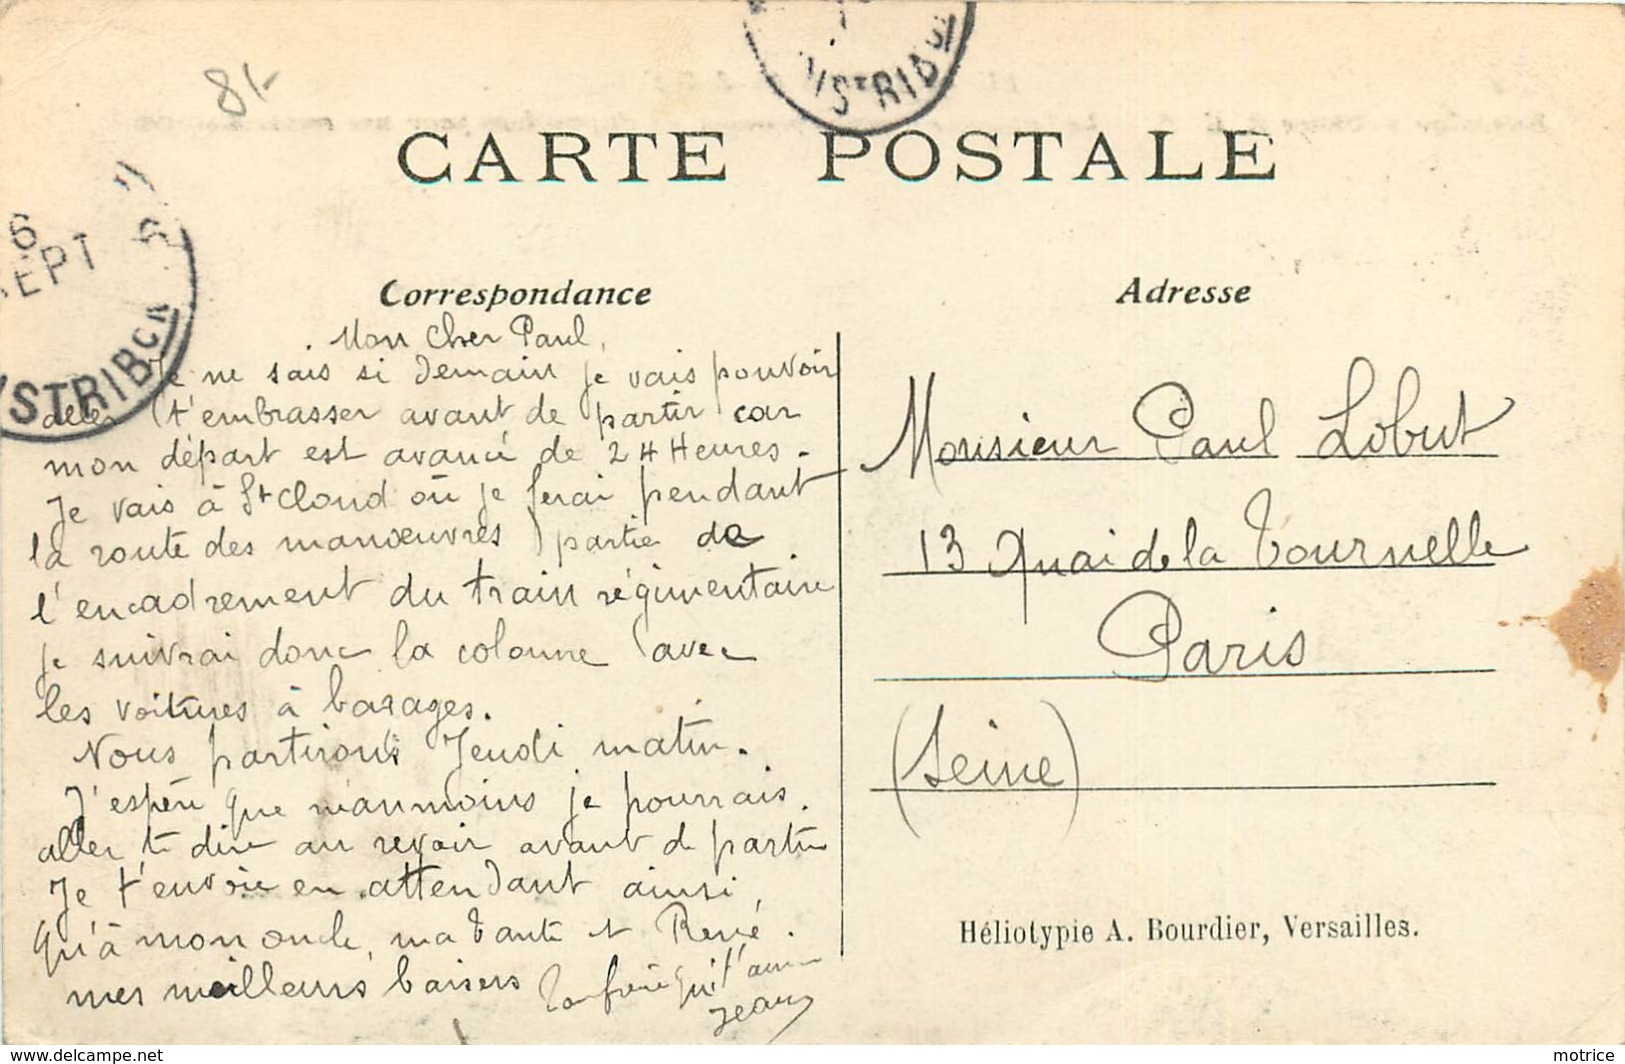 81-
ISTRIB
CARTE POSTALE
6
SEPT
DISTRIB
Correspondance
Mon Cher Paul,
Je ne sais si demain je vais pouvoir
aller t'embrasser avant de partir car
mon départ est avancé de 24 Heures.
Je vais à St Cloud où je ferai pendant
la route des manœuvres partie de
l'encadrement du train régimentaire
je suivrai donc la colonne avec
les voitures à bagages.
Nous partirons Jeudi matin.
J'espère que néanmoins je pourrais
aller te dire au revoir avant de partir
Je t'envoie en attendant ainsi
qu'à mon oncle, ma tante et René.
mes meilleurs baisers Ton frère qui t'aime
Jean
Adresse
Monsieur Paul Lobut
13 Quai de la Tournelle
Paris
(Seine)
Héliotypie A. Bourdier, Versailles.
www.delcampe.net
motrice